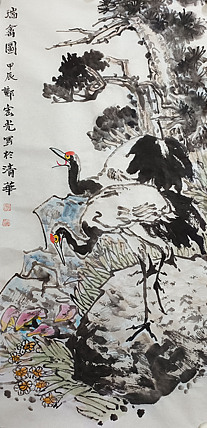 瑞鶴圖 甲辰 鄭宏光 寫於清華